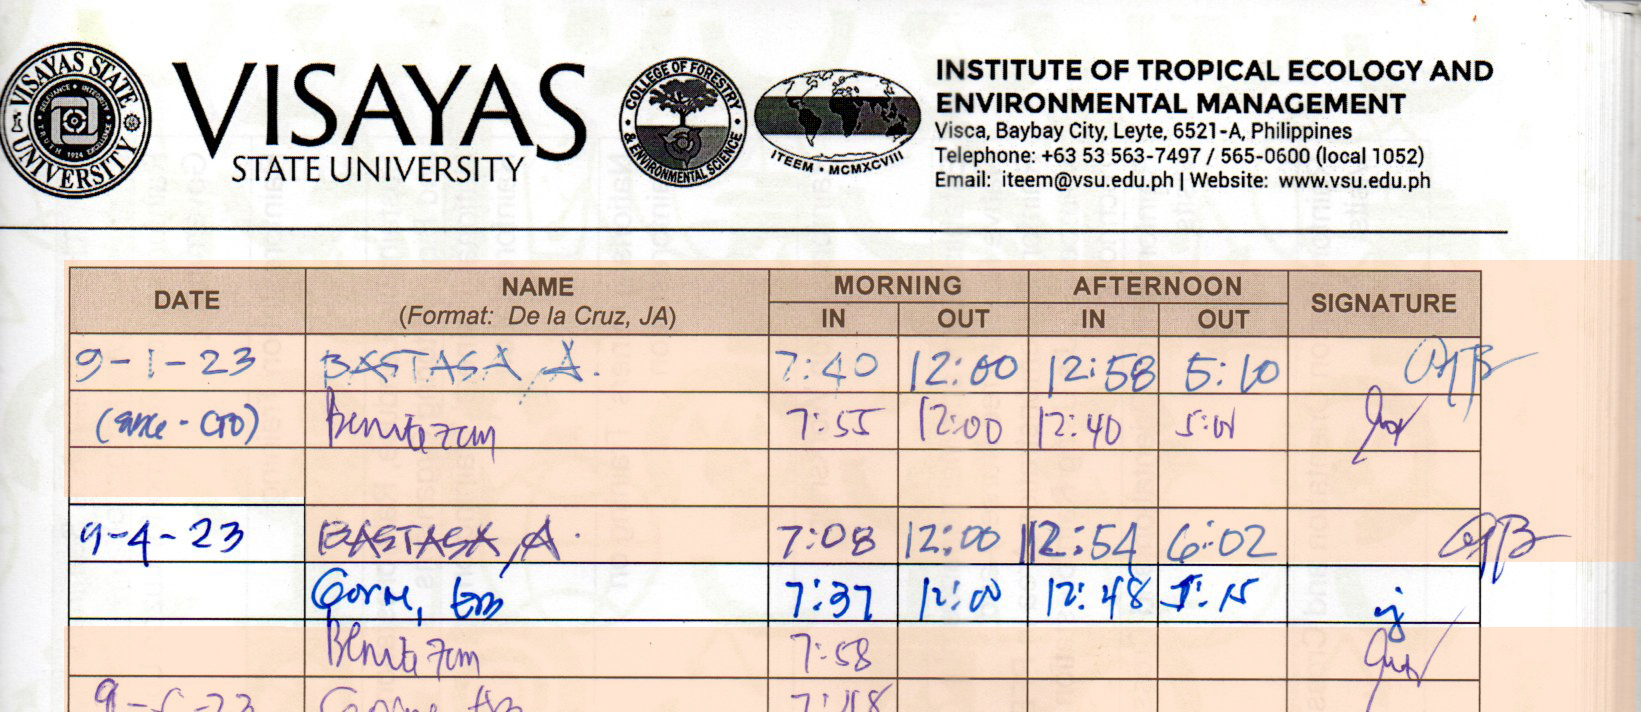 VISAYAS STATE UNIVERSITY
RELEVANCE • INTEGRITY
TRUTH • 1924 • EXCELLENCE
VISAYAS
STATE UNIVERSITY
COLLEGE OF FORESTRY
& ENVIRONMENTAL SCIENCE
ITEEM • MCMXCVIII
INSTITUTE OF TROPICAL ECOLOGY AND
ENVIRONMENTAL MANAGEMENT
Visca, Baybay City, Leyte, 6521-A, Philippines
Telephone: +63 53 563-7497 / 565-0600 (local 1052)
Email: iteem@vsu.edu.ph | Website: www.vsu.edu.ph
DATE NAME MORNING AFTERNOON SIGNATURE
(Format: De la Cruz, JA) IN OUT IN OUT
9-1-23 BASTASA, A. 7:40 12:00 12:58 5:10
CTO) Benitez 7:55 12:00 12:40 5:01
9-4-23 BASTASA, A. 7:08 12:00 12:54 6:02
Gorne, 7:37 12:00 12:48 5:15
Benitez 7:58